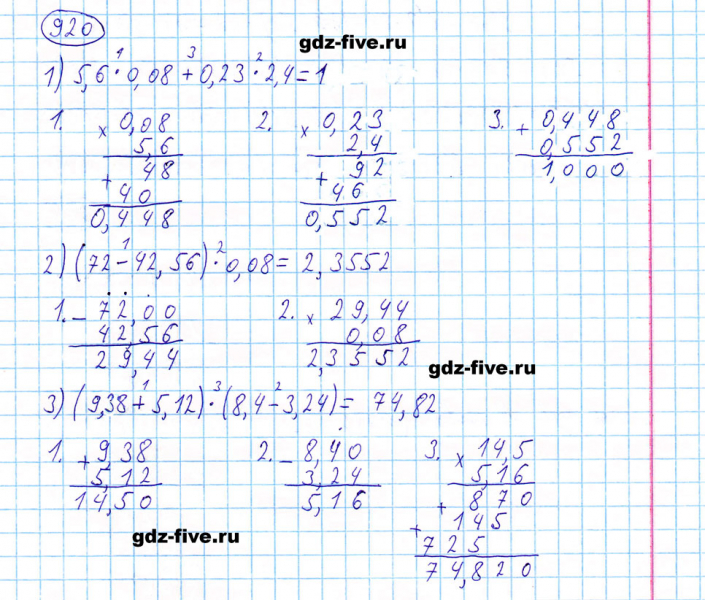 920
gdz-five.ru
1) 5,6 · 0,08 + 0,23 · 2,4 = 1
1 3 2
1. × 0,08 2. × 0,23 3. + 0,448
5,6 2,4 0,552
+ 48 + 92 1,000
40 46
0,448 0,552
2) (72 - 42,56) · 0,08 = 2,3552
1 2
1. - 72,00 2. × 29,44
42,56 0,08
29,44 2,3552
gdz-five.ru
3) (9,38 + 5,12) · (8,4 - 3,24) = 74,82
1 3 2
1. + 9,38 2. - 8,40 3. × 14,5
5,12 3,24 5,16
14,50 5,16 + 870
+ 145
725
74,820
gdz-five.ru